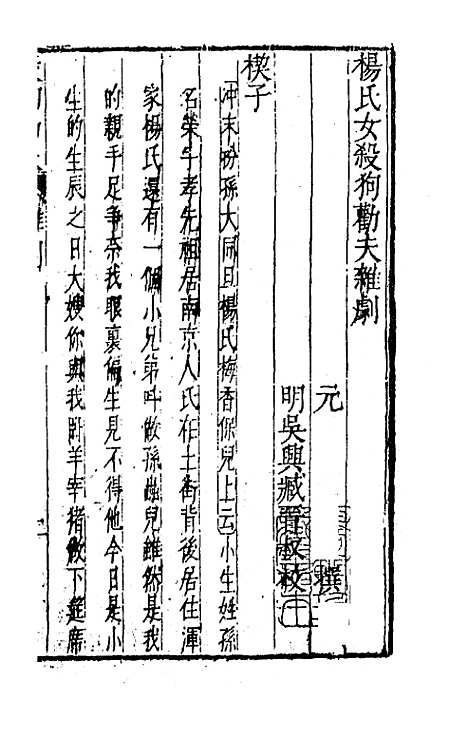 楊氏女殺狗勸夫雜劇
元 撰
明吳興臧晉叔校
楔子
沖末扮孫大同旦楊氏梅香保兒上云小生姓孫
名榮字孝先祖居南京人氏在土街背後居住渾
家楊氏還有一個小兄弟呌做孫蟲兒雖然是我
的親手足爭奈我眼裏偏生見不得他今日是小
生的生辰之日大嫂你與我卧羊宰猪做下筵席